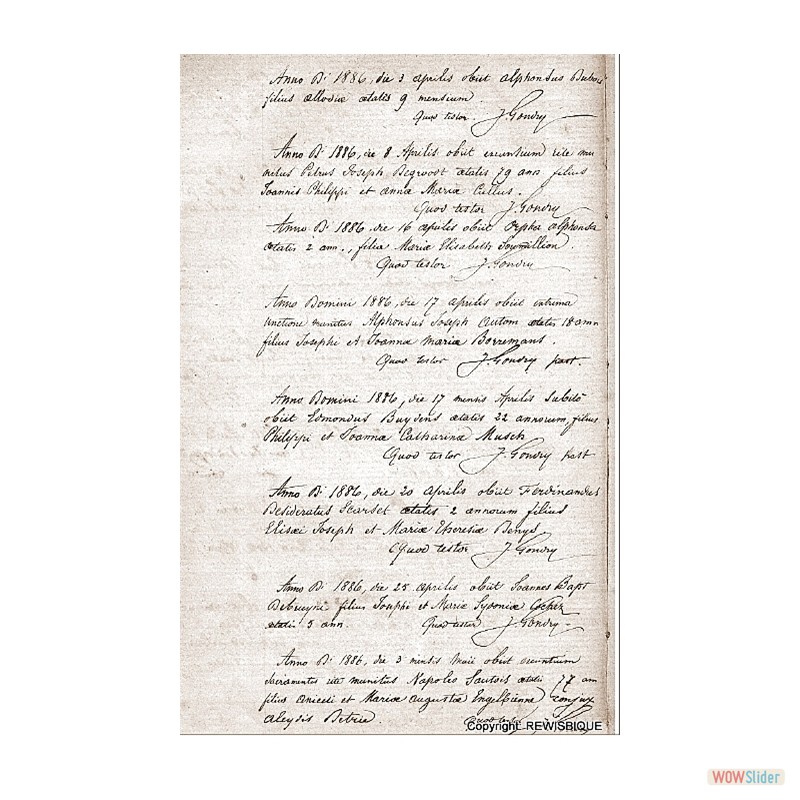 Anno Di 1886, die 3 aprilis obiit alphonsus Dubois
filius Elodiæ ætatis 9 mensium.
Quod testor J. Gondry
Anno Di 1886, die 8 Aprilis obiit exeuntium rite mu
nitus Petrus Joseph Begroost ætatis 79 ann filius
Joannis Philippi et annæ Mariæ Cullus.
Quod testor J. Gondry
Anno Di 1886, die 16 aprilis obiit Orpha alphonsa
ætatis 2 ann., filia Mariæ Elisabeth Soumillion.
Quod testor J. Gondry
Anno Domini 1886, die 17 aprilis obiit extrema
unctione munitus Alphonsus Joseph Autom ætatis 18 ann
filius Josephi et Joannæ Mariæ Borremans.
Quod testor J. Gondry past.
Anno Domini 1886, die 17 mensis Aprilis subito
obiit Edmondus Buydens ætatis 22 annorum, filius
Philippi et Joannæ Catharinæ Musch
Quod testor J. Gondry past
Anno Di 1886, die 20 aprilis obiit Ferdinandus
Desideratus Scarset ætatis 2 annorum filius
Elisæi Joseph et Mariæ Theresiæ Denys
Quod testor J. Gondry
Anno Di 1886, die 25 aprilis obiit Joannes Bapt
Debueyni filius Josephi et Mariæ Sydoniæ
ætatis 5 ann. Quod testor J. Gondry
Anno Di 1886, die 3 mensis Maii obiit exeuntium
sacramentis rite munitus Napoleo Sautois ætatis 77 ann
filius Aniceti et Mariæ augustæ Engelbienne conjux
Aleydis Detrie. Quod testor
Copyright REWISBIQUE
WOWSlider